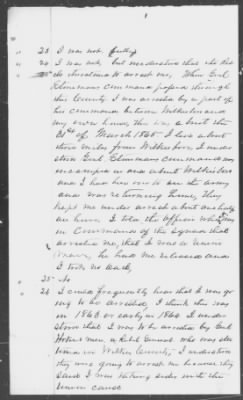 23. I was not.
24 I was not, but understood that
to arrest me, When Genl
command passed through
this County I was arrested by a part of
his command between Wilkesboro and
my own house, this was about the
31st of March 1865. I live about
three miles from Wilkesboro. I under
stood Genl. command was
encamped in and about Wilkesboro
and I had been over to see the army
and was returning home, They
kept me under arrest about an half
an hour. I told the officer who was
in Command of the squad that
arrested me, that I was a Union
man, he had me released and
I took no oath,
25 No
26 I could frequently hear that I was go
ing to be arrested, I think this was
in 1863 or early in 1864 I under
stood that I was to be arrested by Genl
men, a Rebel General who was sta
tioned in Wilkes County, I understood
they was going to arrest me because they
said I was taking sides with the
Union cause